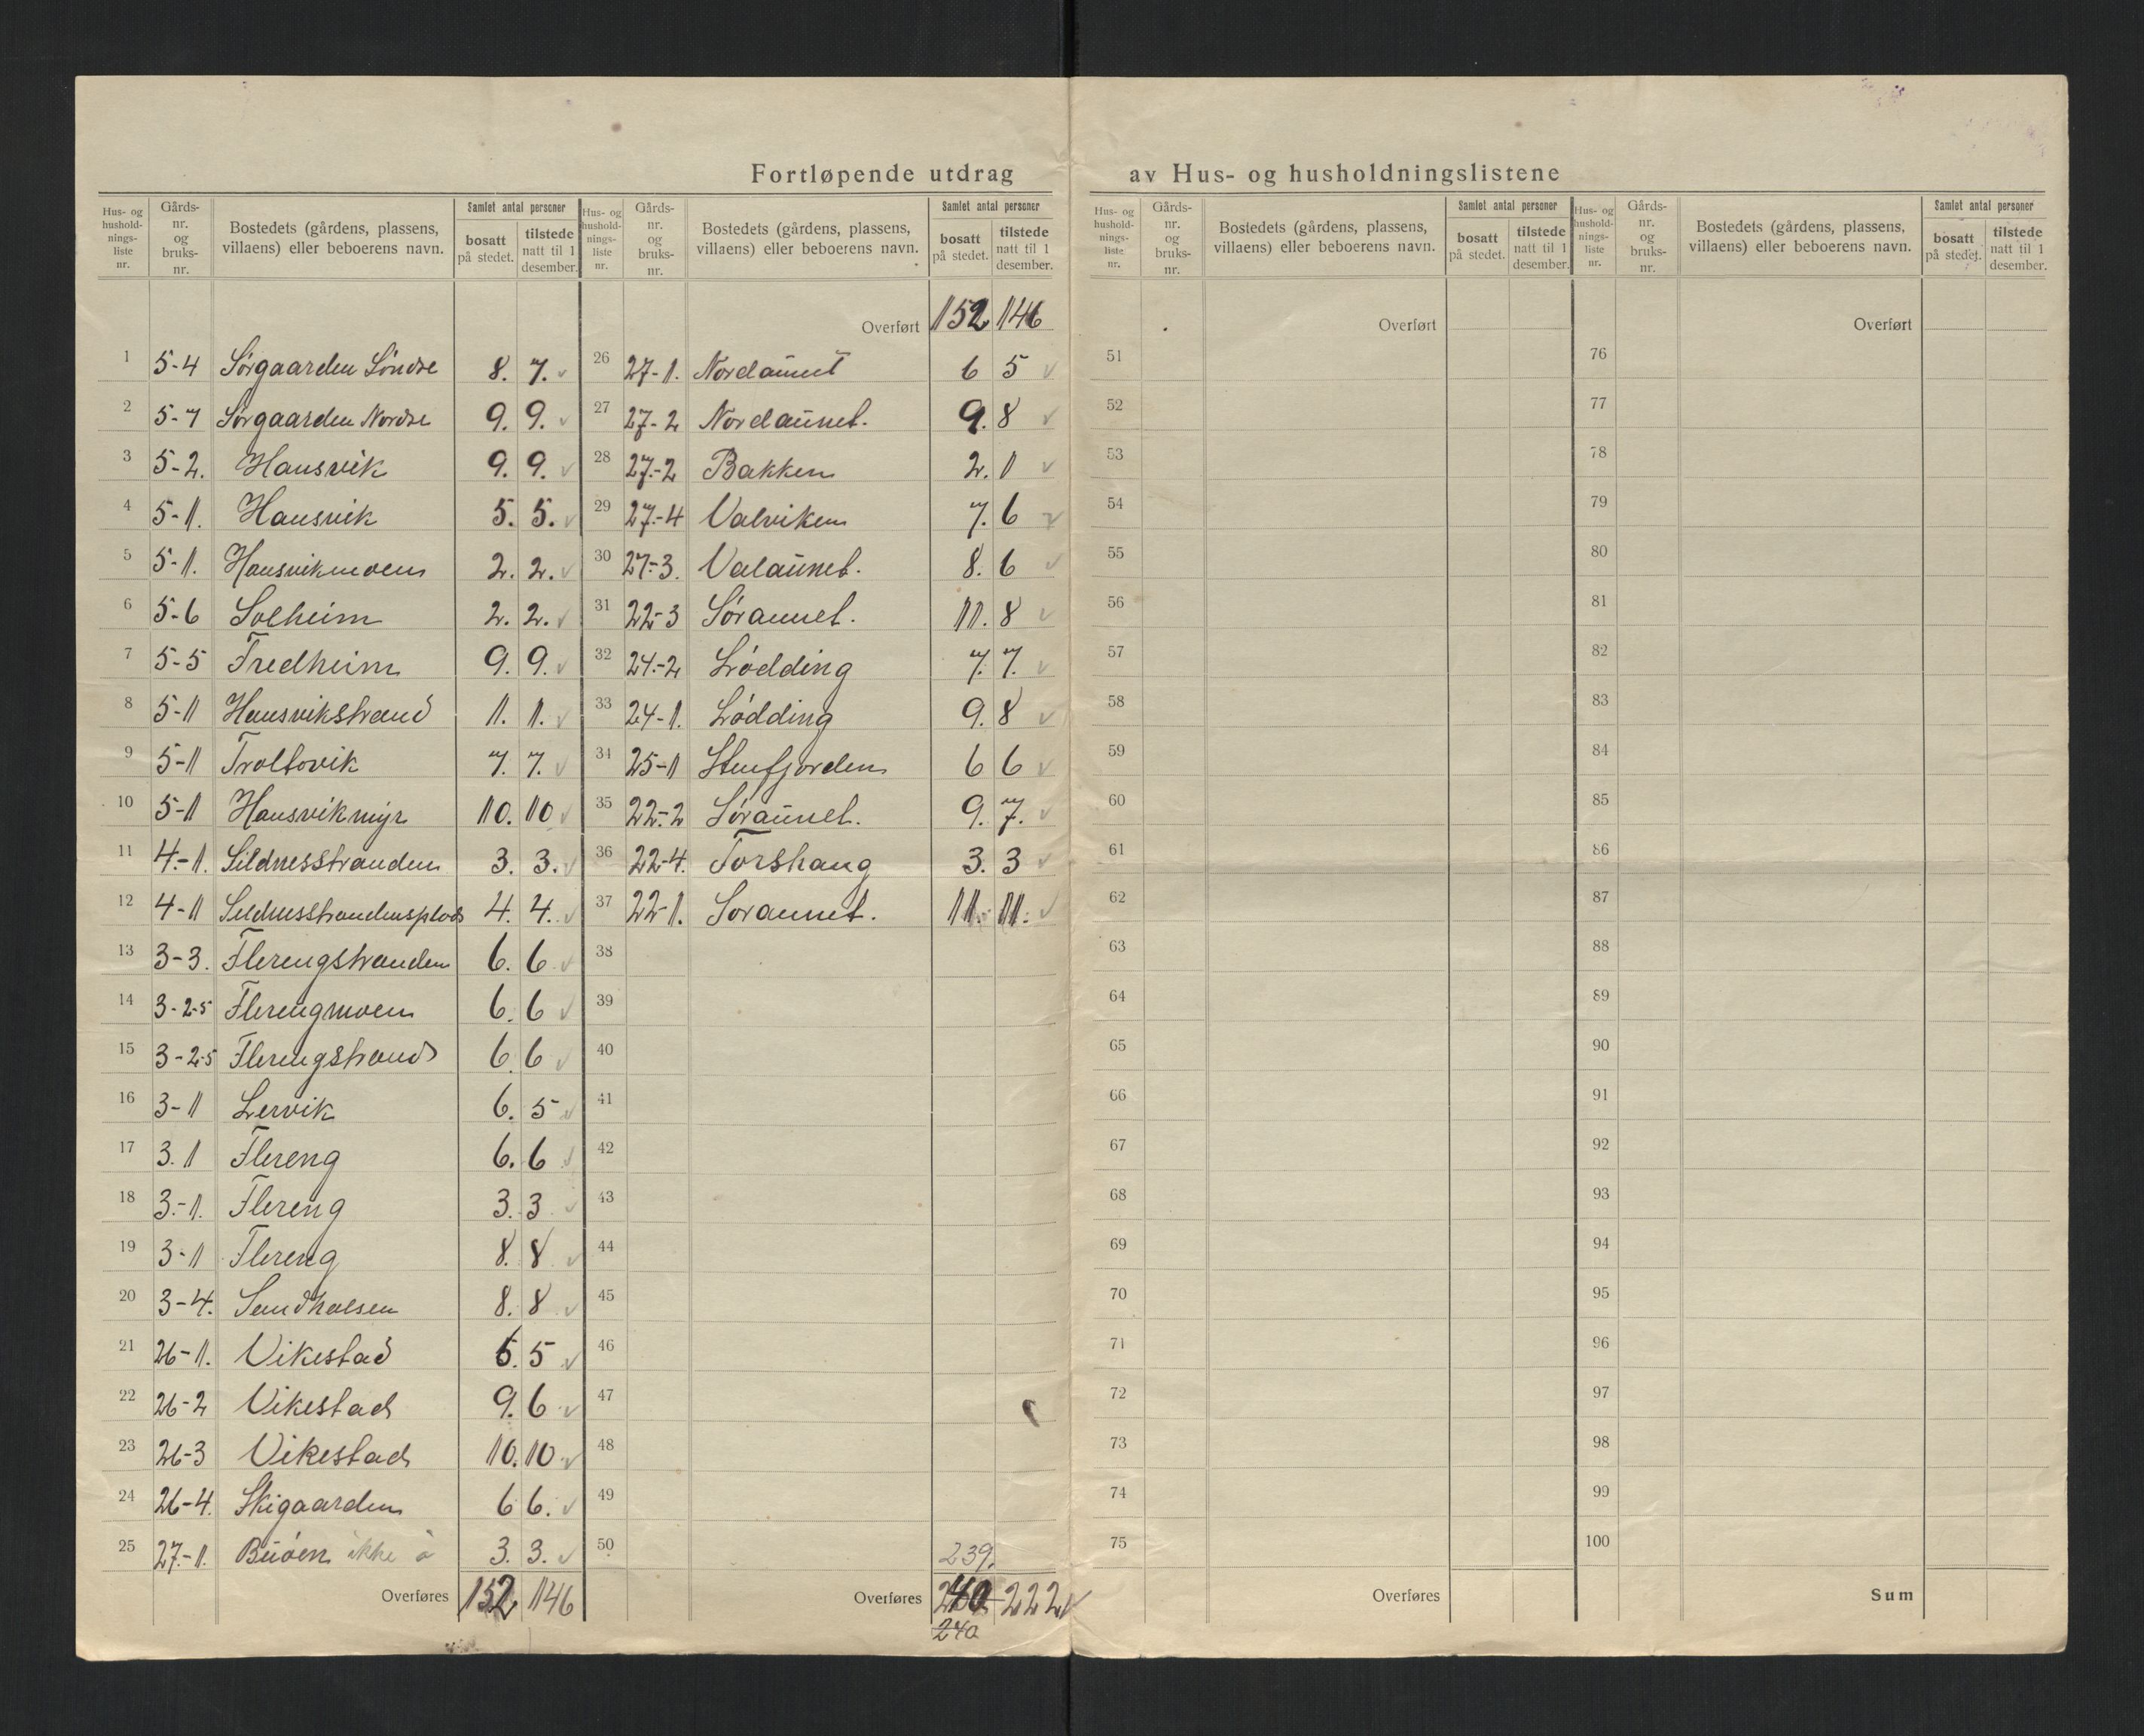 Fortløpende utdrag av Hus- og husholdningslistene
Hus- og hushold-nings-liste nr. Gårds-nr. og bruks-nr. Bostedets (gårdens, plassens, villaens) eller beboerens navn. Samlet antal personer bosatt på stedet. tilstede natt til 1 desember.
1 5-4 Sørgaarden Søndre 8. 7. ✓
2 5-7 Sørgaarden Nordre 9. 9. ✓
3 5-2. Hansvik 9. 9. ✓
4 5-1. Hansvik 5. 5. ✓
5 5-1. Hansvikmoen 2. 2. ✓
6 5-6 Solheim 2. 2. ✓
7 5-5 Fredheim 9. 9. ✓
8 5-1 Hansvikstrand 1. 1. ✓
9 5-1 Troltovik 7. 7. ✓
10 5-1 Hansvikmyr 10. 10 ✓
11 4-1. Sildnesstranden 3. 3. ✓
12 4-1 Sildnesstrandensplads 4. 4. ✓
13 3-3. Flerengstranden 6. 6 ✓
14 3-2-5 Flerengmoen 6. 6 ✓
15 3-2-5 Flerengstrand 6. 6 ✓
16 3-1 Lervik 6. 5 ✓
17 3.1 Flereng 6. 6 ✓
18 3-1. Flereng 3. 3 ✓
19 3-1 Flereng 8. 8 ✓
20 3-4. Sandhalsen 8. 8 ✓
21 26-1. Vikestad 5 ✓
22 26-2 Vikestad 9. 6 ✓
23 26-3 Vikestad 10. 10 ✓
24 26-4. Skigaarden 6 6. ✓
25 27-1. Buöen ikke ö 3. 3. ✓
Overføres 152 146
Hus- og hushold-nings-liste nr. Gårds-nr. og bruks-nr. Bostedets (gårdens, plassens, villaens) eller beboerens navn. Samlet antal personer bosatt på stedet. tilstede natt til 1 desember.
Overført 152 146
26 27-1. Nordaunet 6 5 ✓
27 27-2 Nordaunet. 9. 8 ✓
28 27-2 Bakken 2. 1 ✓
29 27-4 Valviken 7. 6 ✓
30 27-3. Valaunet. 8. 6 ✓
31 22-3 Søraunet. 11. 8 ✓
32 24-2 Lødding 7. 7. ✓
33 24-1. Lødding 9. 8 ✓
34 25-1 Stenfjorden 6 6 ✓
35 22-2 Søraunet. 9. 7. ✓
36 22-4. Torshaug 3. 3 ✓
37 22-1. Soraunet. 11. 11. ✓
38
39
40
41
42
43
44
45
46
47
48
49
50
239.
Overføres 222 ✓
240
Hus- og hushold-nings-liste nr. Gårds-nr. og bruks-nr. Bostedets (gårdens, plassens, villaens) eller beboerens navn. Samlet antal personer bosatt på stedet. tilstede natt til 1 desember.
Overført
51
52
53
54
55
56
57
58
59
60
61
62
63
64
65
66
67
68
69
70
71
72
73
74
75
Overføres
Hus- og hushold-nings-liste nr. Gårds-nr. og bruks-nr. Bostedets (gårdens, plassens, villaens) eller beboerens navn. Samlet antal personer bosatt på stedet. tilstede natt til 1 desember.
Overført
76
77
78
79
80
81
82
83
84
85
86
87
88
89
90
91
92
93
94
95
96
97
98
99
100
Sum